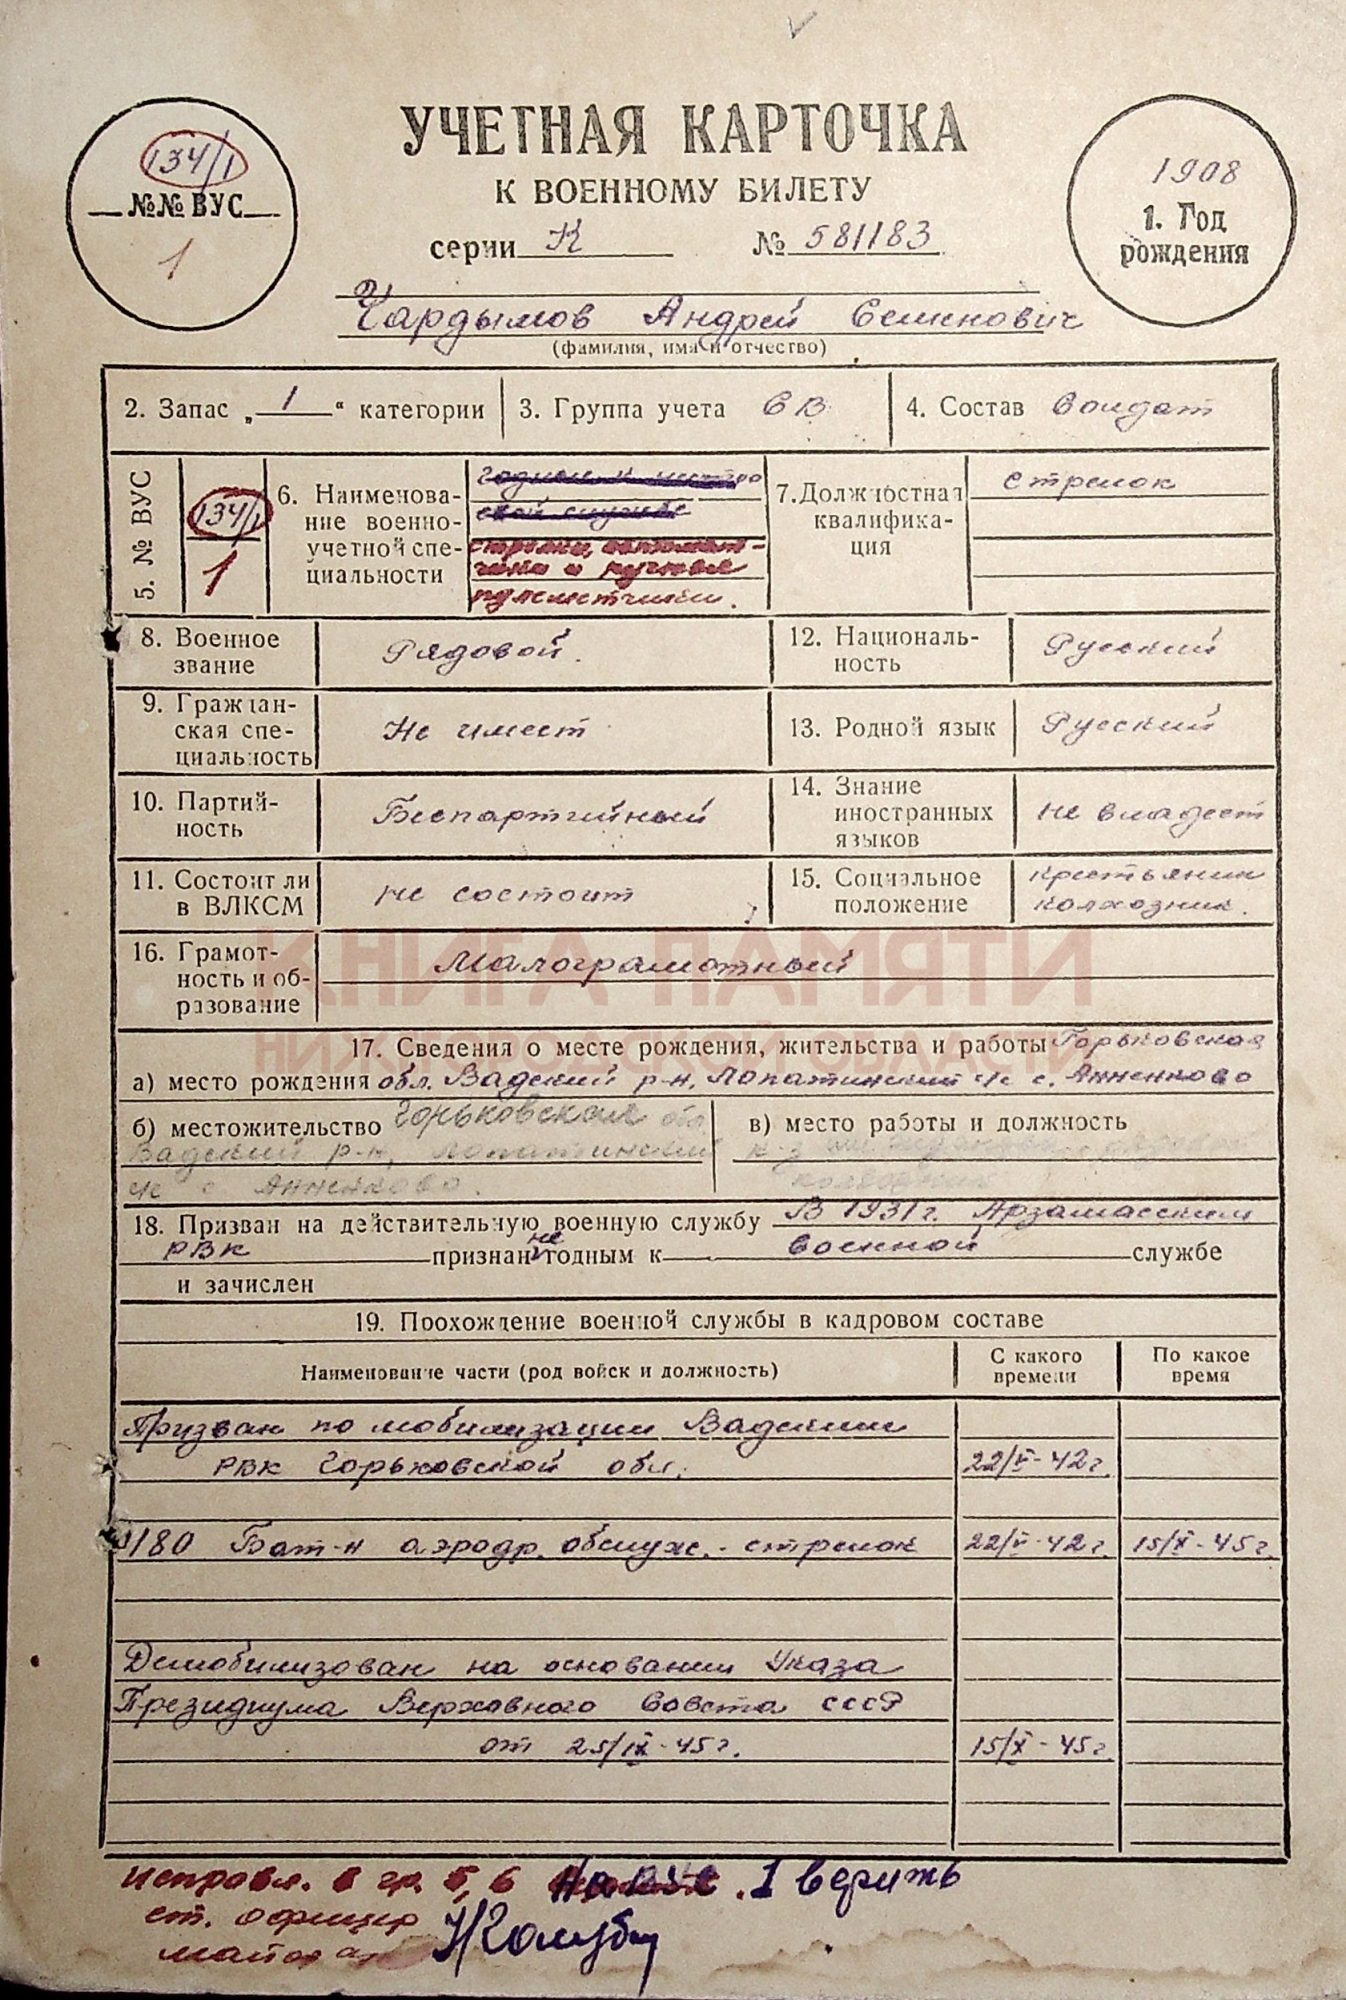 УЧЕТНАЯ КАРТОЧКА
К ВОЕННОМУ БИЛЕТУ
серии К № 581183
134/1
№№ ВУС
1
1908
1. Год
рождения
Чардымов Андрей Семенович
(фамилия, имя и отчество)
2. Запас „ 1 “ категории
3. Группа учета СВ
4. Состав Солдат
5. № ВУС
134/1
1
6. Наименова-
ние военно-
учетной спе-
циальности
стрелки, автомат-
чики и ручные
пулеметчики.
7. Должностная
квалифика-
ция
Стрелок
8. Военное
звание
Рядовой.
9. Граждан-
ская спе-
циальность
Не имеет
10. Партий-
ность
Беспартийный
11. Состоит ли
в ВЛКСМ
не состоит
12. Националь-
ность
Русский
13. Родной язык
Русский
14. Знание
иностранных
языков
не владеет
15. Социальное
положение
крестьянин
колхозник.
16. Грамот-
ность и об-
разование
Малограмотный
КНИГА ПАМЯТИ
НИЖЕГОРОДСКОЙ ОБЛАСТИ
17. Сведения о месте рождения, жительства и работы Горьковская
а) место рождения обл. Вадский р-н, Лопатинский с/с с. Анненково
б) местожительство Горьковская обл
Вадский р-н, Лопатинский
с/с с. Анненково.
в) место работы и должность
к-з
колхозник
18. Призван на действительную военную службу В 1931г. Арзамасским
РВК признан не годным к военной службе
и зачислен
19. Прохождение военной службы в кадровом составе
Наименование части (род войск и должность)
С какого
времени
По какое
время
Призван по мобилизации Вадским
РВК Горьковской обл. 22/V-42г.
1180 Бат-н аэродр. обслуж. - стрелок 22/V-42г. 15/X-45г.
Демобилизован на основании Указа
Президиума Верховного Совета СССР
от 25/IX-45г. 15/X-45г
Исправл. в гр. 5, 6 на ВУС 1 верить
ст. офицер
майор